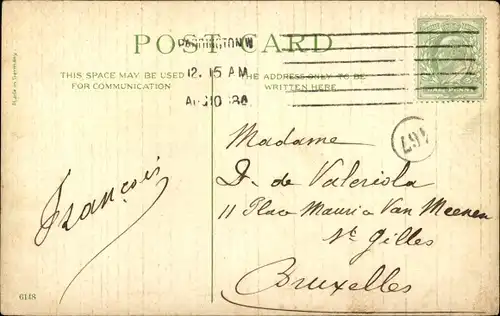 POST CARD
PADDINGTON W
12.15 AM
AU 10 08
THIS SPACE MAY BE USED
FOR COMMUNICATION
THE ADDRESS ONLY TO BE
WRITTEN HERE
Made in Germany.
467
Madame
D. de Valeriola
11 Place Maurice Van Meenen
St Gilles
Bruxelles
François
6148